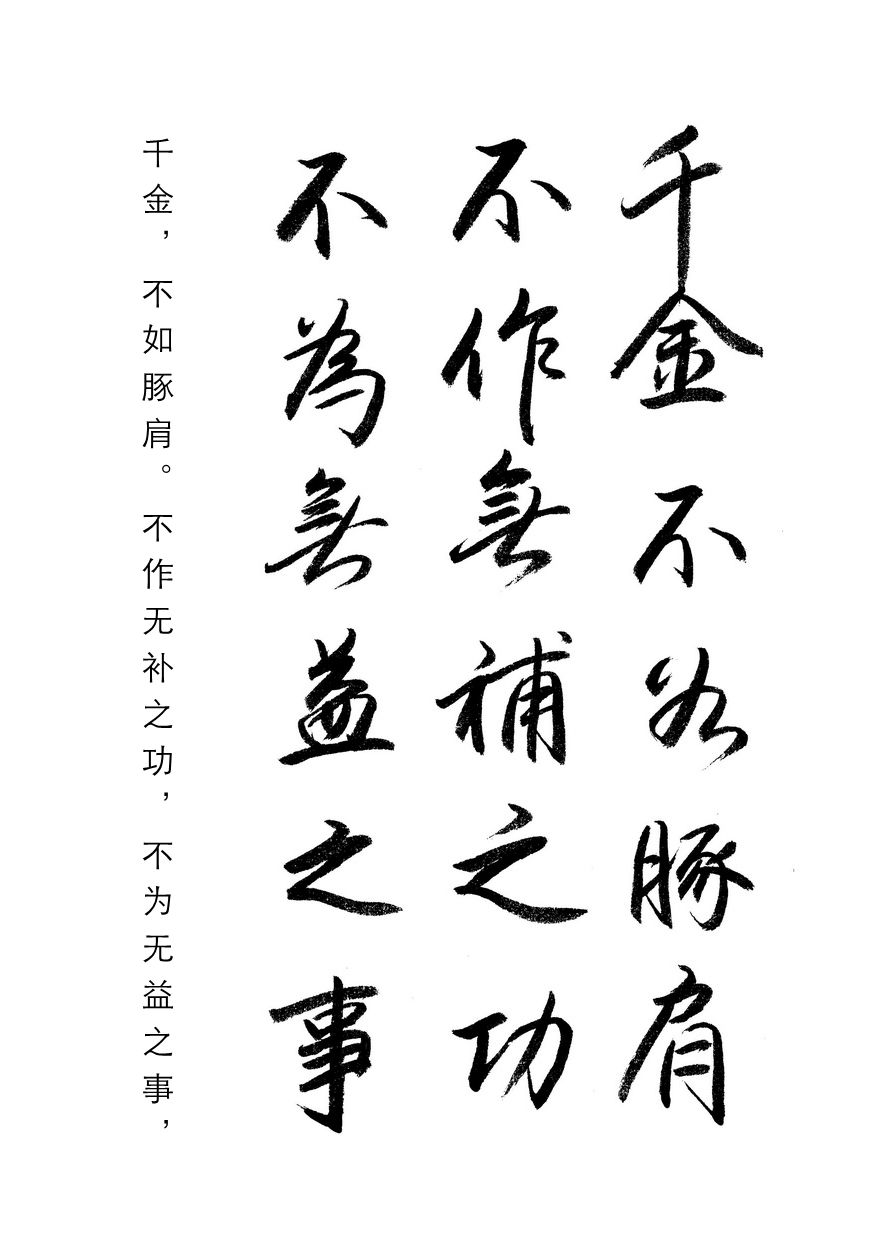 千金不如豚肩
不作無補之功
不為無益之事
千金，不如豚肩。不作无补之功，不为无益之事，